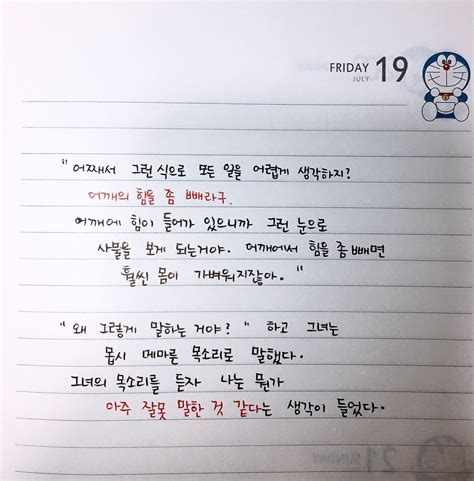 FRIDAY 19
JULY
"어째서 그런 식으로 모든 일을 어렵게 생각하지?
어깨의 힘을 좀 빼라구.
어깨에 힘이 들어가 있으니까 그런 눈으로
사물을 보게 되는거야. 어깨에서 힘을 좀 빼면
훨씬 몸이 가벼워지잖아."
"왜 그렇게 말하는 거야?" 하고 그녀는
몹시 메마른 목소리로 말했다.
그녀의 목소리를 듣자 나는 뭔가
아주 잘못 말한 것 같다는 생각이 들었다.
21 SUNDAY